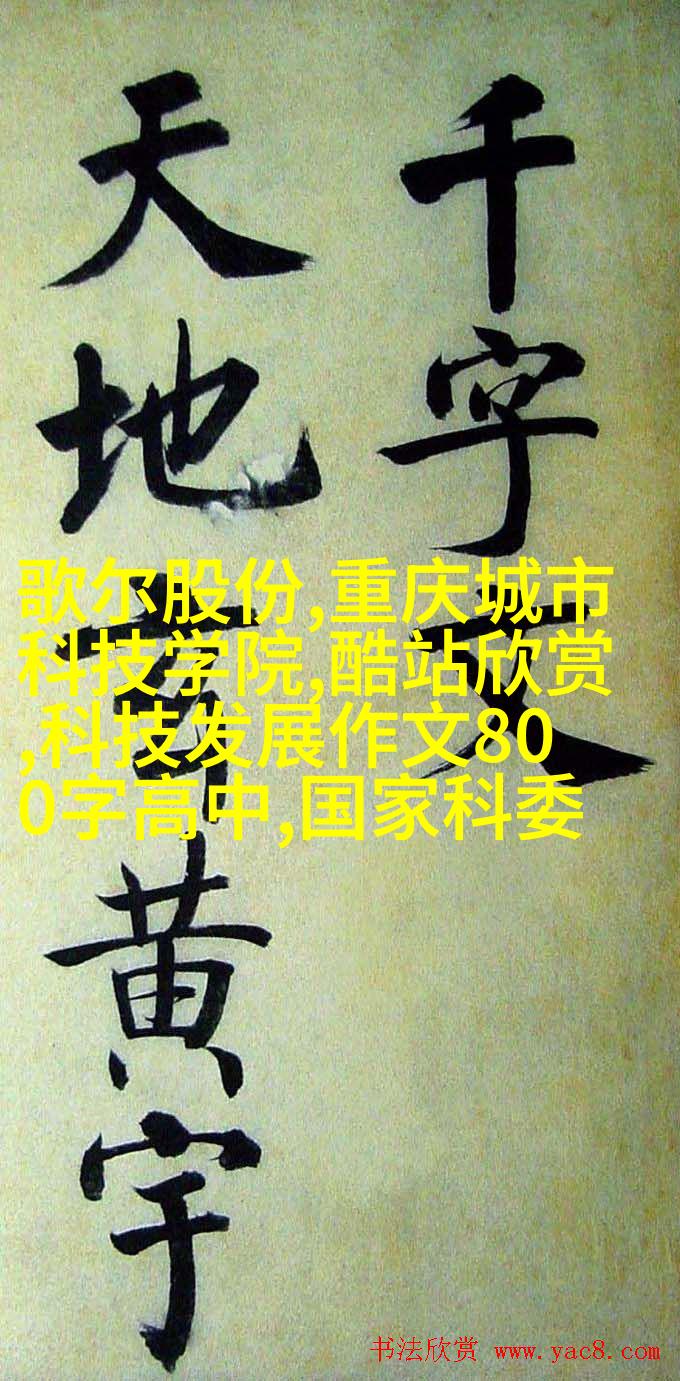 千字文
天地玄黄宇
歌尔股份,重庆城市
科技学院,酷站欣赏
,科技发展作文80
0字高中,国家科委
书法欣赏 www.yac8.com